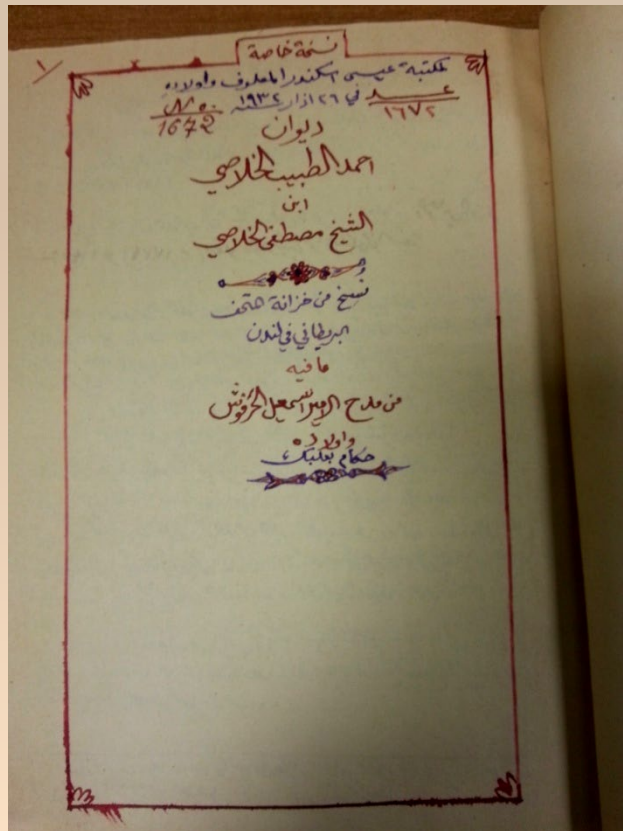 نسخة خاصة
١
لمكتبة عيسى اسكندر المعلوف واولاده
عـــدد ١٦٧٢ في ٢٦ اذار سنة ١٩٣٢ No. 1672
ديوان
احمد الطبيب الخلاصي
ابن
الشيخ مصطفى الخلاصي
نسخ من خزانة متحف
البريطاني في لندن
ما فيه
من مدح الامير اسمعيل الحرفوش
واولاده
حكام بعلبك